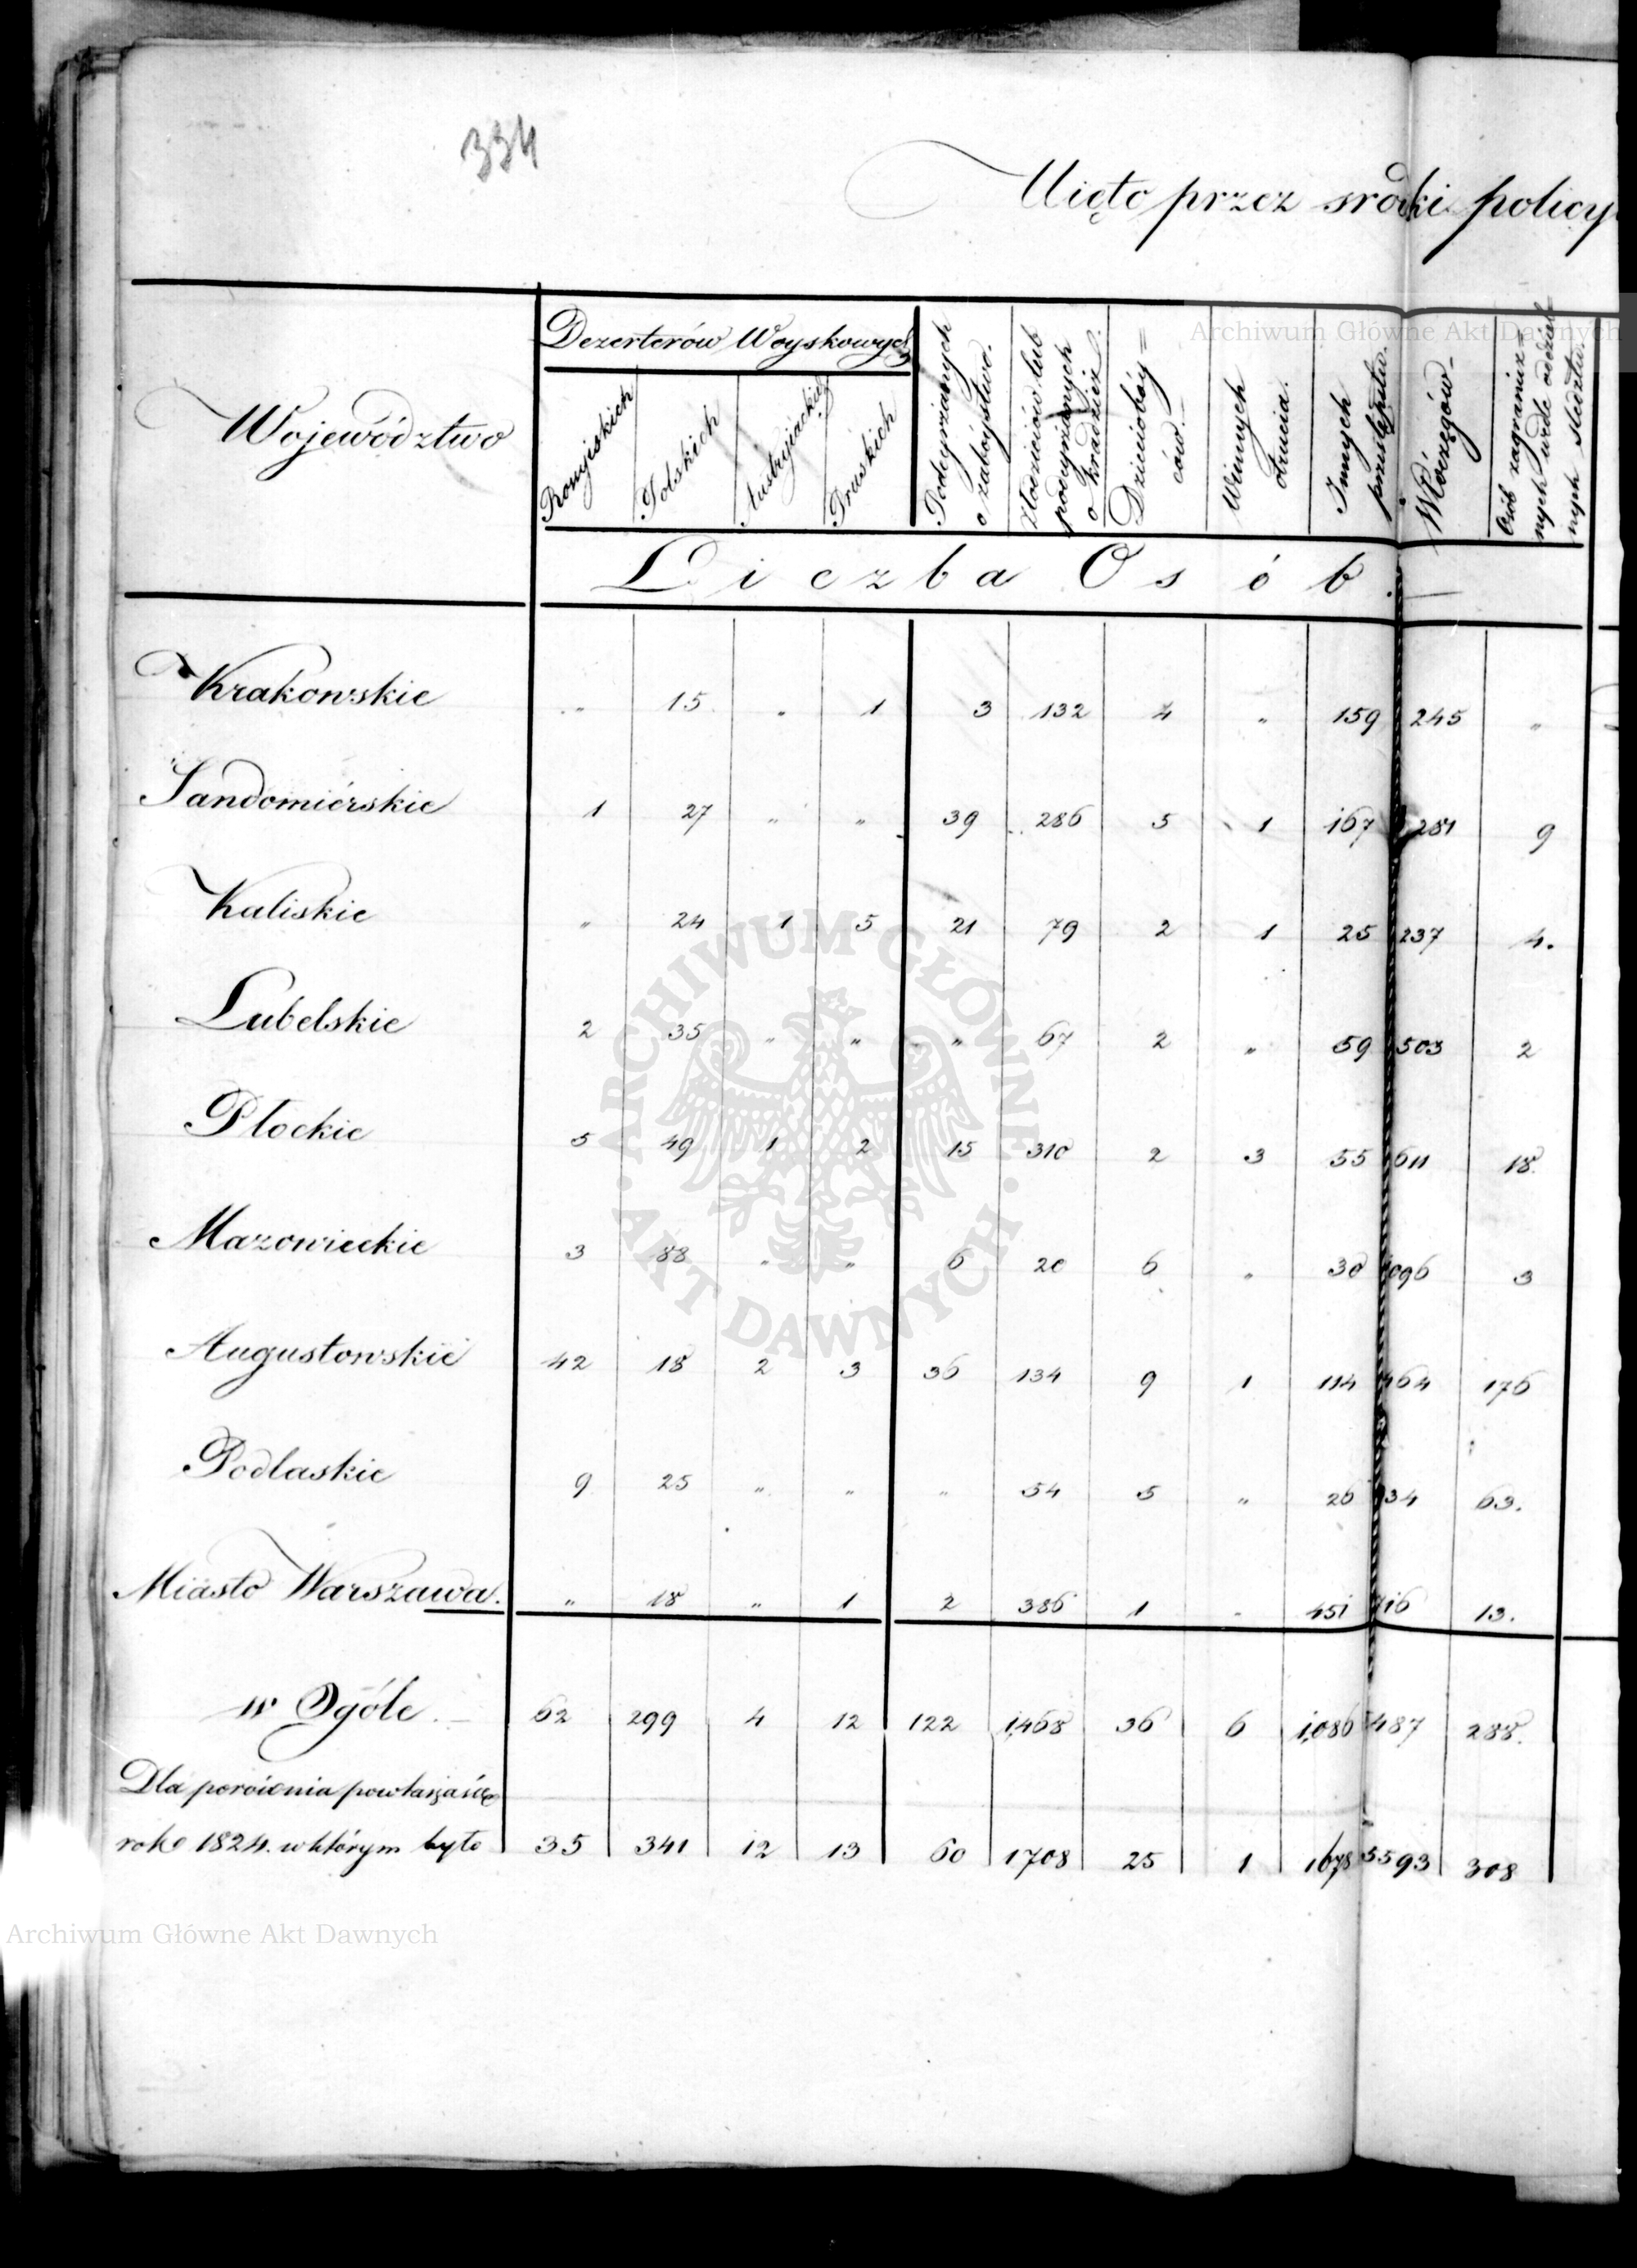 334
Uięto przez srodki policy
Archiwum Główne Akt Dawnych
Województwo
Dezerterów Woyskowych
Rossyiskich
Polskich
Austryiackich
Pruskich
Podeyrzanych
o zaboystwo.
Złodzieiów lub
podeyrzanych
o kradzież.
Dzieciobóy=
ców.
Winnych
otrucia.
Innych
przestępstw.
Włóczęgów
Osób zagranicz=
nych
Liczba Osób.
Krakowskie „ 15 „ 1 3 132 4 „ 159 245 „
Sandomiérskie 1 27 „ „ 39 286 5 1 167 281 9
Kaliskie „ 24 1 5 21 79 2 1 25 237 4.
Lubelskie 2 35 „ „ „ 67 2 „ 59 503 2
Płockie 5 49 1 2 15 310 2 3 55 611 18.
Mazowieckie 3 88 „ „ 6 20 6 „ 30 096 3
Augustowskie 42 18 2 3 36 134 9 1 114 464 176
Podlaskie 9 25 „ „ „ 54 5 „ 26 34 63.
Miasto Warszawa. „ 18 „ 1 2 386 1 „ 451 716 13.
w Ogóle. 62 299 4 12 122 1,468 36 6 1,086 487 288.
Dla porównia powtarza się
rok 1824. w którym było 35 341 12 13 60 1708 25 1 1678 5593 308
ARCHIWUM GŁÓWNE · AKT DAWNYCH ·
Archiwum Główne Akt Dawnych